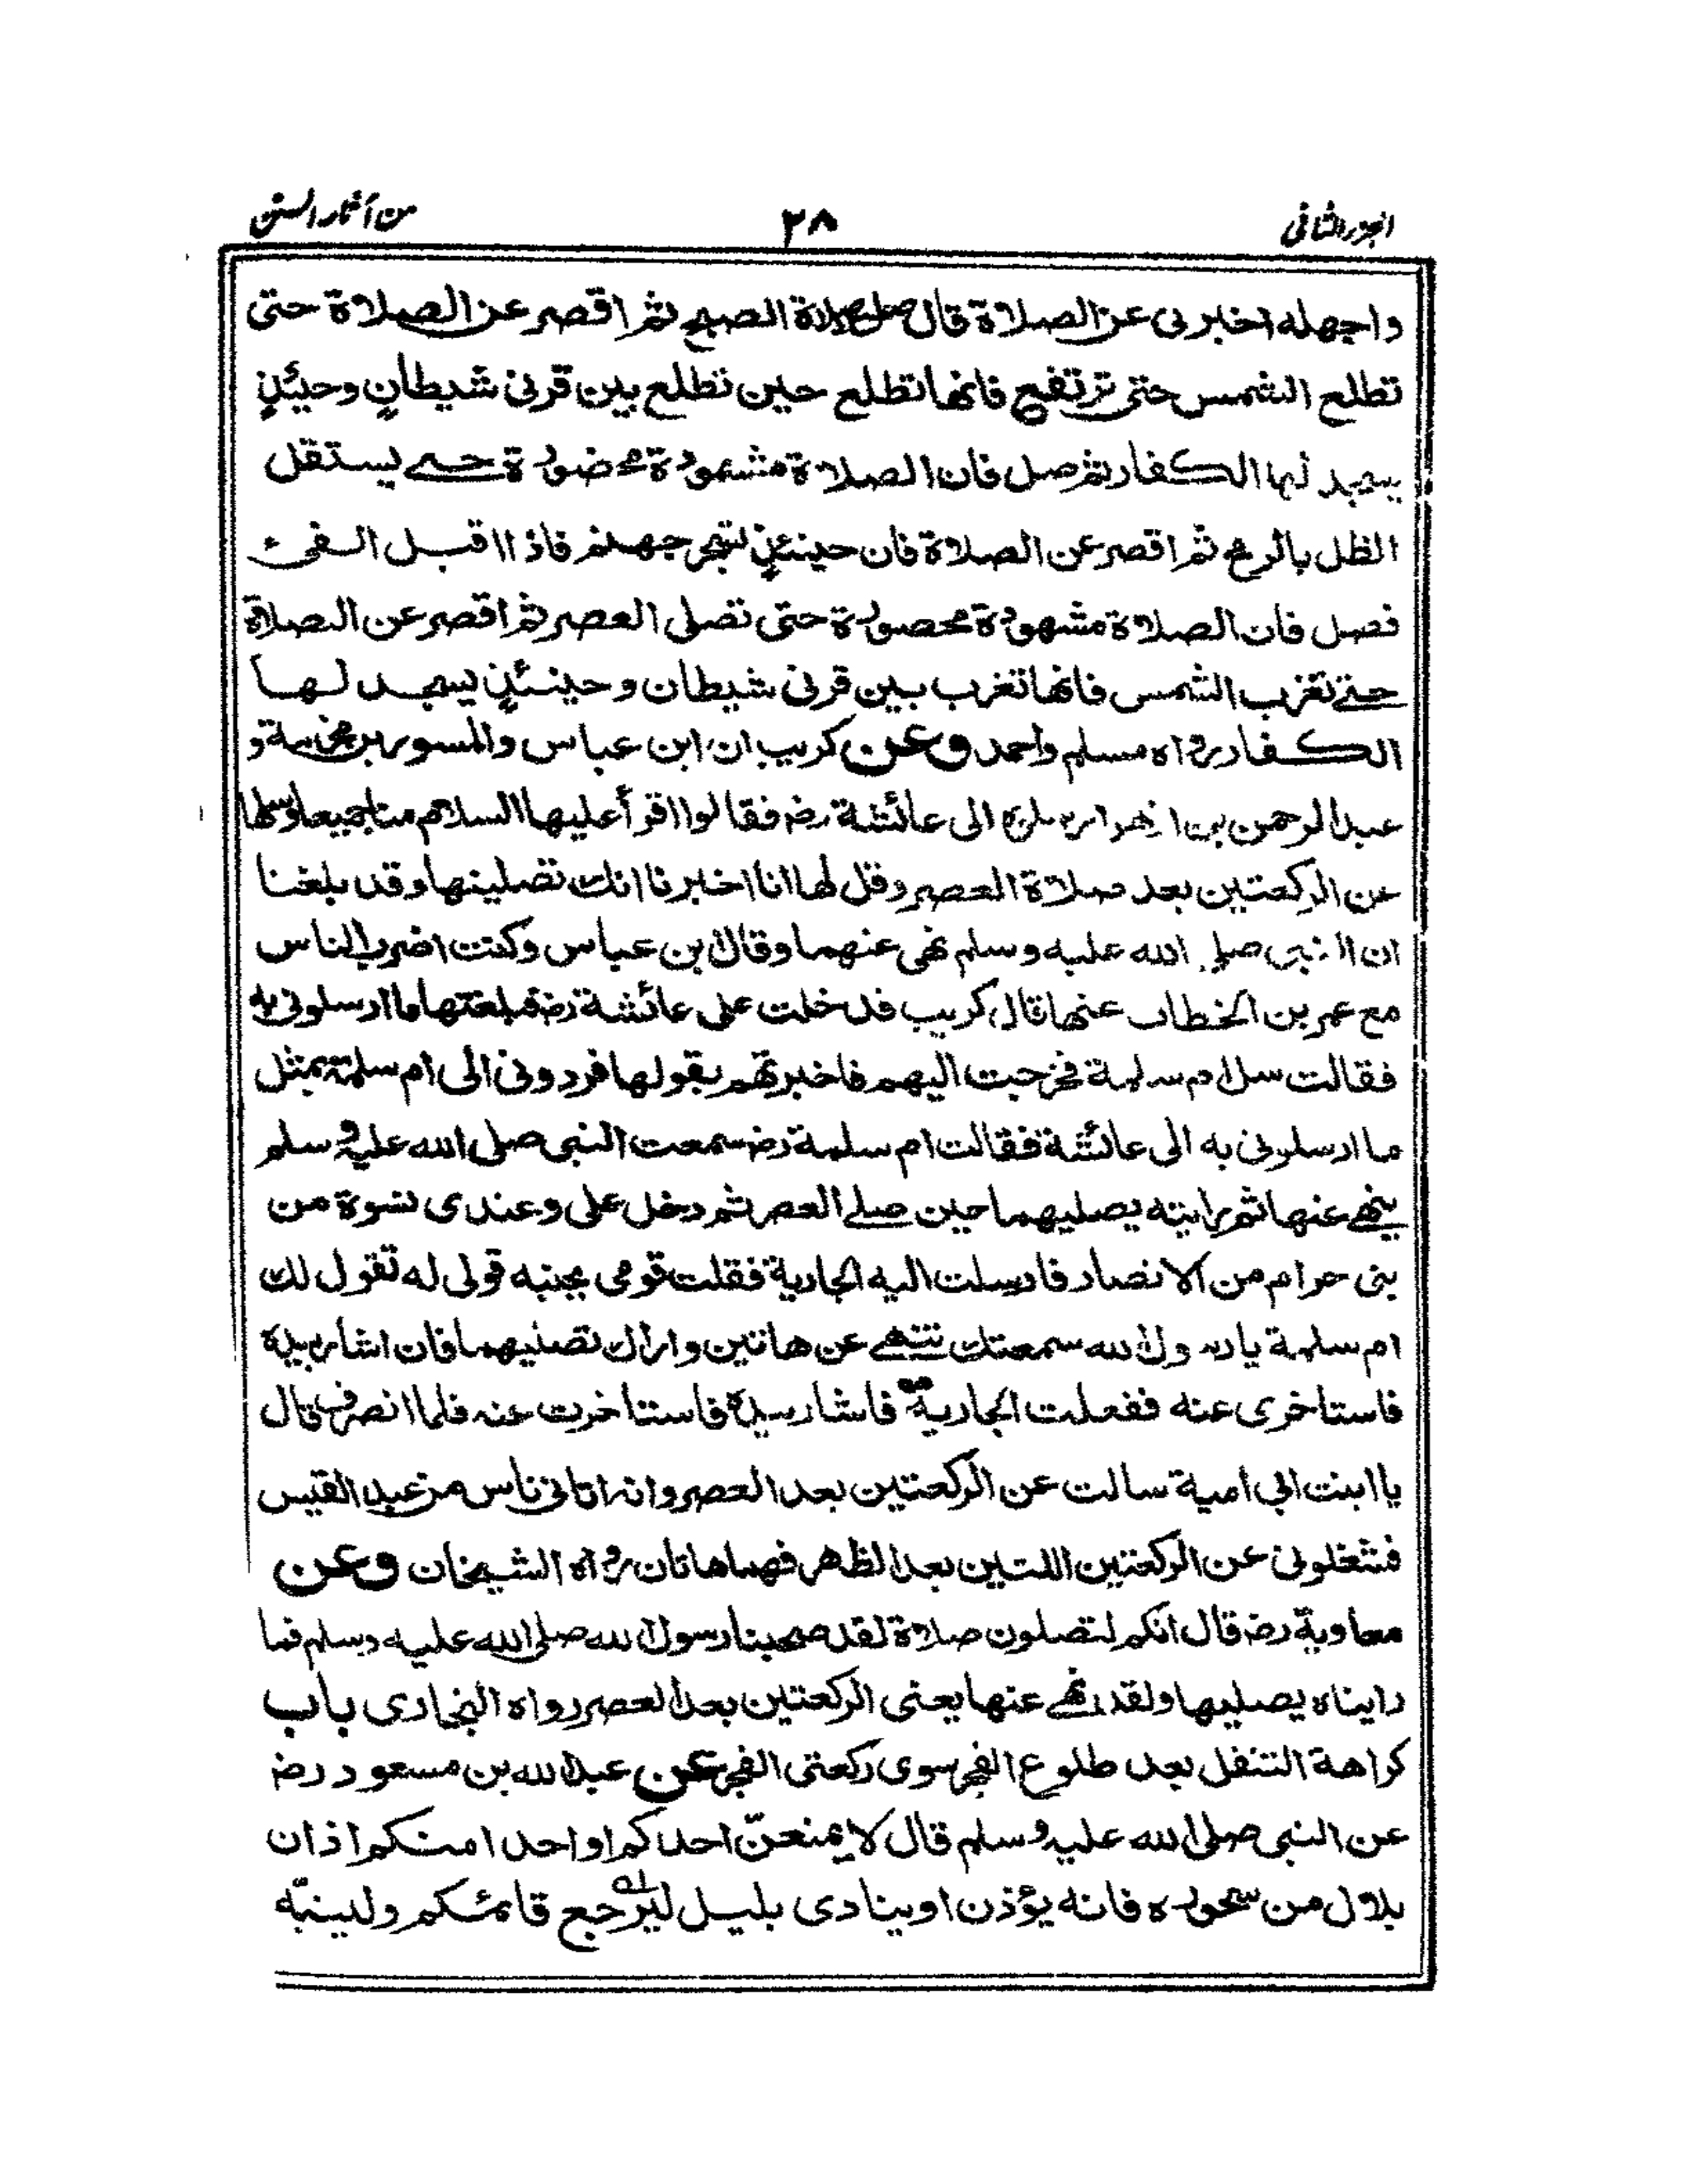 الجزء الثانى
٣٨
من آثار السنن
واجهله اخبرنى عن الصلاة قال صل صلاة الصبح ثم اقصر عن الصلاة حتى
تطلع الشمس حتى ترتفع فانها تطلع حين تطلع بين قرنى شيطانٍ وحينئذٍ
يسجد لها الكفار ثم صل فان الصلاة مشهودة محضورة حتے يستقل
الظل بالرمح ثم اقصر عن الصلاة فان حينئذٍ تسجر جهنم فاذا اقبل الفىء
فصل فان الصلاة مشهودة محصورة حتى تصلى العصر ثم اقصر عن الصلاة
حتے تغرب الشمس فانها تغرب بين قرنى شيطان وحينئذٍ يسجد لها
الكفار رواه مسلم واحمد وعن كريب ان ابن عباس والمسور بن مخرمة و
عبد الرحمن بن ازهر ارسلوه الى عائشة رضـ فقالوا اقرأ عليها السلام منا جميعا وسلها
عن الركعتين بعد صلاة العصر وقل لها انا اخبرنا انك تصلينها وقد بلغنا
ان النبى صلى الله عليه وسلم نهى عنهما وقال ابن عباس وكنت اضرب الناس
مع عمر بن الخطاب عنها قال كريب فدخلت على عائشة رضـ فبلغتها ما ارسلونى به
فقالت سل ام سلمة فخرجت اليهم فاخبرتهم بقولها فردونى الى ام سلمة بمثل
ما ارسلونى به الى عائشة فقالت ام سلمة رضـ سمعت النبى صلى الله عليه وسلم
ينهے عنها ثم رايته يصليهما حين صلے العصر ثم دخل على وعندى نسوة من
بنى حرام من الانصار فارسلت اليه الجارية فقلت قومى بجنبه قولى له تقول لك
ام سلمة يا رسول الله سمعتك تنهے عن هاتين واراك تصليهما فان اشار بيده
فاستاخرى عنه ففعلت الجارية فاشار بيده فاستاخرت عنه فلما انصرف قال
يا ابنت ابي أمية سالت عن الركعتين بعد العصر وانه اتانى ناس من عبد القيس
فشغلونى عن الركعتين اللتين بعد الظهر فهما هاتان رواه الشيخان وعن
معاوية رضـ قال انكم لتصلون صلاة لقد صحبنا رسول الله صلى الله عليه وسلم فما
رايناه يصليها ولقد نهے عنها يعنى الركعتين بعد العصر رواه البخارى باب
كراهة التنفل بعد طلوع الفجر سوى ركعتى الفجر عن عبد الله بن مسعود رضـ
عن النبى صلى الله عليه وسلم قال لا يمنعنّ احدكم او احدا منكم اذان
بلال من سحوره فانه يؤذن او ينادى بليل ليرجع قائمكم ولينبّه